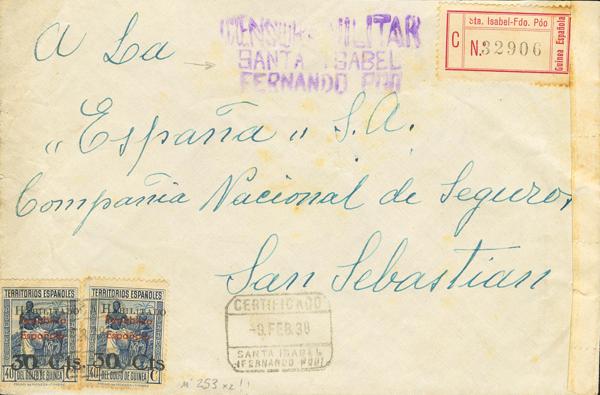 A La
CENSURA MILITAR
SANTA ISABEL
FERNANDO POO
Sta. Isabel-Fdo. Póo
C N. 32906
Guinea Española
"España" S.A.
Compañia Nacional de Seguros,
San Sebastian
TERRITORIOS ESPAÑOLES
HABILITADO
República
Española
30 Cts.
40 DEL GOLFO DE GUINEA Cs
TERRITORIOS ESPAÑOLES
HABILITADO
República
Española
30 Cts
40 DEL GOLFO DE GUINEA Cs
CERTIFICADO
-9.FEB.38
SANTA ISABEL
(FERNANDO POO)
nº 253 x2!!